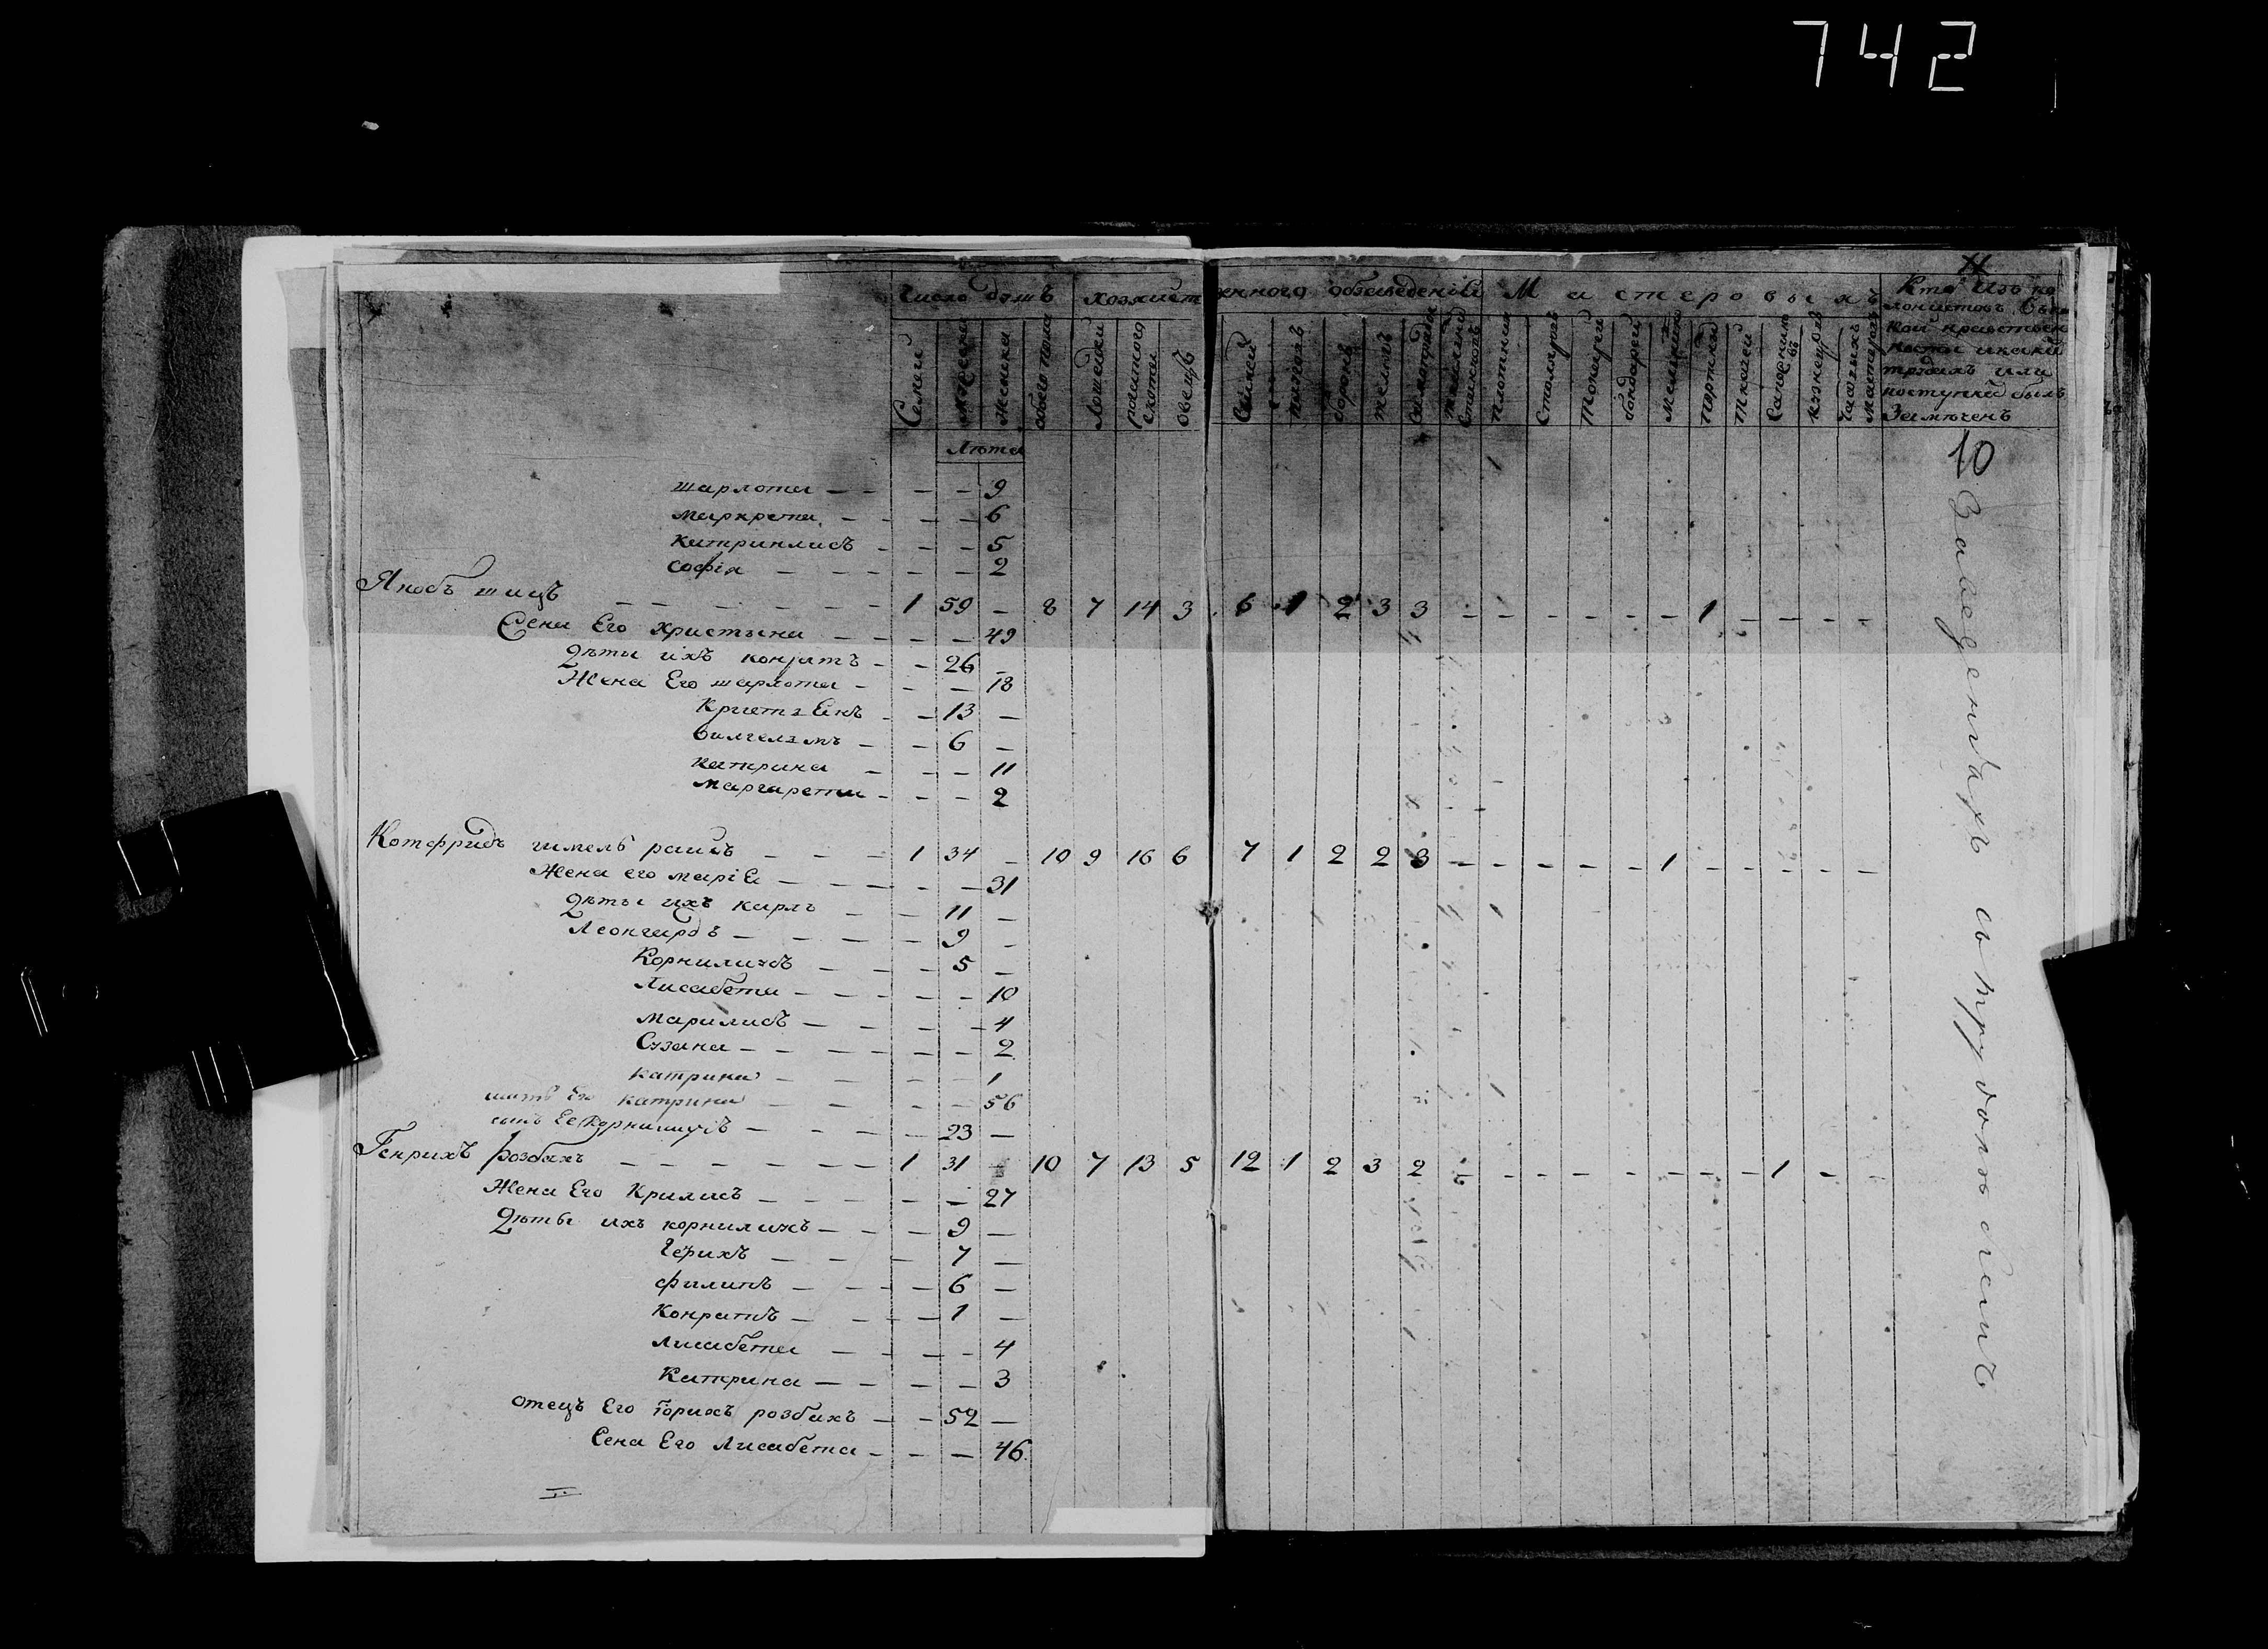 742
Число душъ
хозяист
веннаго обзаведенія
Мастеровыхъ
Кто Изъ ко
лонистовъ
кои
трудахъ или
поступке былъ
Замечень
Семей
мужеска
женска
обоего пола
Лошадей
рогатого скота
Овецъ
Свиней
плуговъ
боронъ
телегъ
Плотник
Столяръ
Токарей
бондарей
Мельник
Портной
Ткачей
Сапожник
кузнецовъ
Лета
10
шарлота — — — — 9
Маркрета — — — — 6
Катринлисъ — — — 5
Софія — — — — — 2
Якобъ шицъ — — — 1 59 — 8 7 14 3 6 1 2 3 3 — — — — — — 1 — — — —
Сена Его Христына — — — — 49
Дѣты ихъ конратъ — — 26 —
Жена Его шарлота — — — 18
Кристъ Енъ — — 13 —
Вилгелэмъ — — 6 —
Катрина — — — 11
Маргарета — — — 2
Котфридъ гимель раихъ — — — 1 34 — 10 9 16 6 7 1 2 2 3 — — — — — 1 — — — — —
Жена его маріа — — — — 31
Дѣты ихъ карлъ — — 11 —
Леонгардъ — — — 9 —
Корнилиусъ — — — 5 —
Лисабета — — — — 10
Марилисъ — — — 4
Сузана — — — — — 2
Катрина — — — — 1
мать Его катрина — — — — 56
сынъ Ее Корнилиусъ — — — — 23 —
Генрихъ розбахъ — — — — — — 1 31 — 10 7 13 5 12 1 2 3 2 — — — — — — — — 1 — —
Жена Его Крилисъ — — — — — 27
Дѣты ихъ корнилиусъ — — — 9 —
Герихъ — — — — 7 —
Филипъ — — — — 6 —
Конратъ — — — — 1 —
Лисабета — — — — 4
Катрина — — — — 3
отецъ Его Горихъ розбахъ — — 52 —
Сена Его Лисабета — — — 46
Заведеніахъ и трудолюбемъ